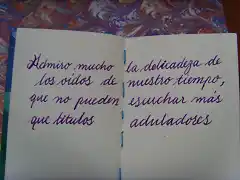 Admiro mucho la delicadeza de
los oidos de nuestro tiempo,
que no pueden escuchar más
que titulos aduladores